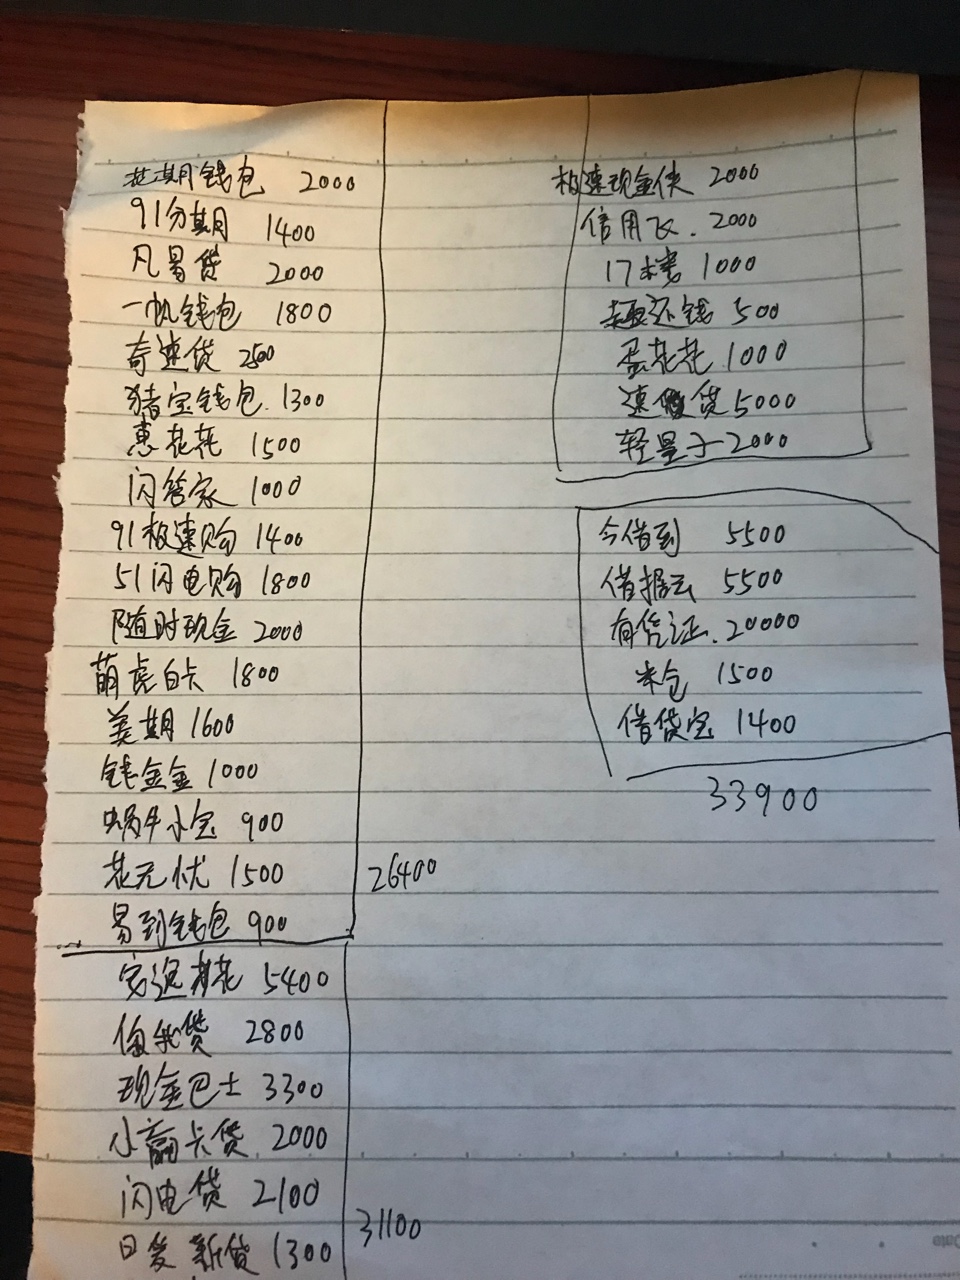 花期钱包 2000
91分期 1400
凡易贷 2000
一帆钱包 1800
奇速贷 2500
猪宝钱包 1300
惠花花 1500
闪管家 1000
91极速购 1400
51闪电购 1800
随时现金 2000
萌虎白卡 1800
美期 1600
钱金金 1000
蜗牛小宝 900
花无忧 1500
26400
易到钱包 900
5400
贷 2800
现金巴士 3300
小赢卡贷 2000
闪电贷 2100
31100
新贷 1300
极速现金侠 2000
信用飞. 2000
17楼 1000
还钱 500
蛋花花 1000
速贷 5000
轻量子 2000
今借到 5500
借据云 5500
有凭证. 20000
米仓 1500
借贷宝 1400
33900
Date